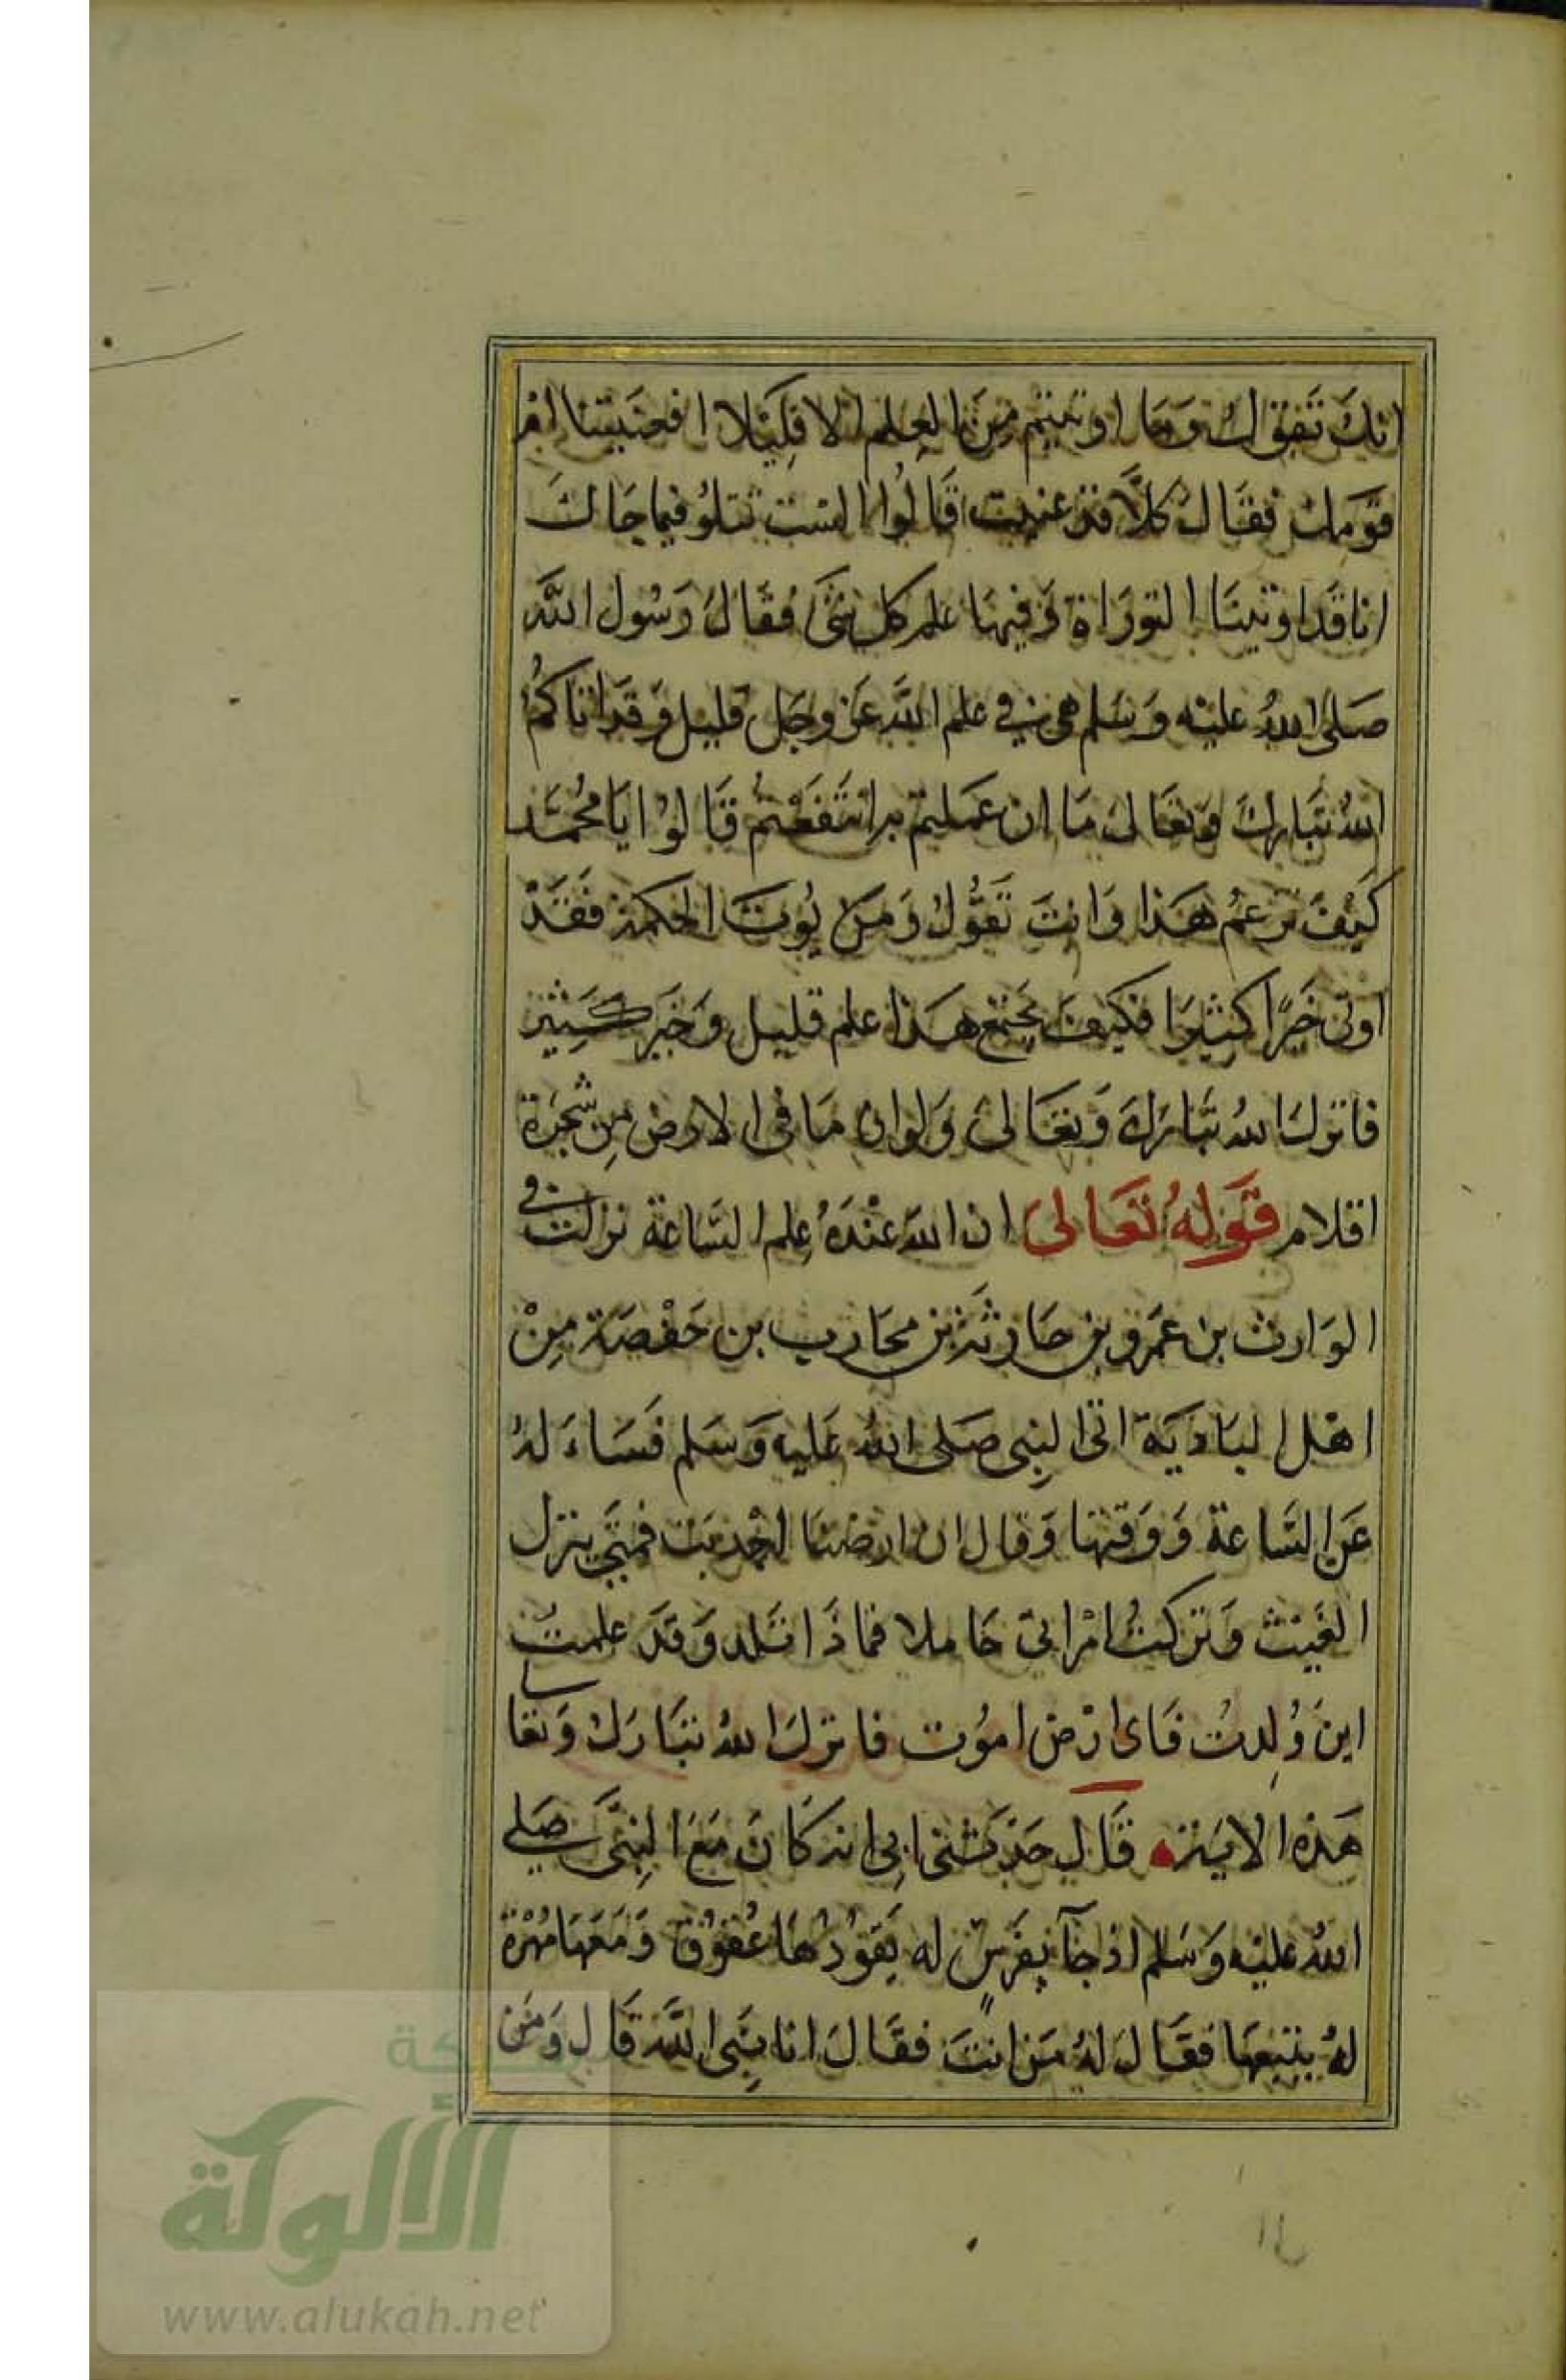 انك تَقول وَمَا اوتيتم مِنَ العِلم الا قَلِيْلا افعنيتنا امْ
قَومك فقَال كَلَّا قد عنيت قَالُوا الست تتلوُ فيما جَاكَ
انا قَد اوتينَا التورَاة وَفيهَا علم كل شَئ فقَال رَسُول اللَّه
صَلى اللهُ عليْه وَسَلم هي في علم اللَّه عَز وجَل قليل وَقَد اتاكمُ
اللهُ تبَارك وَتعَالى مَا ان عَملتم به انتَفَعْتمُ قَالوُا يَا محُمَّد
كَيْفَ تزعمُ هَذا وَانتَ تَقُولُ وَمَن يُوتَ الحكمة فقَدْ
اوتى خَيرًا كثيرَا فكيفَ يَجتمع هَذا علم قليل وَخَير كَثِير
فانزلَ اللهُ تبَارَكَ وَتعَالى وَلو ان مَا في الارض مِن شَجَرة
اقلام قَولهُ تَعَالىَ ان اللهَ عنْدَهُ عِلم السَّاعة نزلت في
الوَارث بن عَمَرو بن حَارثَة بن محَارب بن حَفْصَة مِنْ
اهْل البَادَيَة اتى النبِى صَلى اللهُ عَليه وَسَلم فَسَاءَ لهُ
عَن السَّاعة وَوَقتهَا وَقال ان ارضنَا اجْدبَت فمتى ينزل
الغَيث وَتركتُ امْراتي حَاملا فمَاذَا تَلد وَقَد علمتُ
اينَ وُلِدتُ فَاى ارْض امُوت فانزلَ اللهُ تبَارَكَ وَتعَا لى
هَذه الايَة قَال حَدثَنى ابِى انه كَانَ مَعَ النبِىّ صَلى
اللهُ عليْه وَسَلم اذ جَآ بِفَرسٍ له يَقوُدُهَا عُقوُق وَمَعَهَا مُهْرَة
لهُ يتبَعهَا فقَال لَهُ مَن انتَ فقَالَ انا نبِى اللَّه قَال وَمَن
شبكة
الألوكة
www.alukah.net